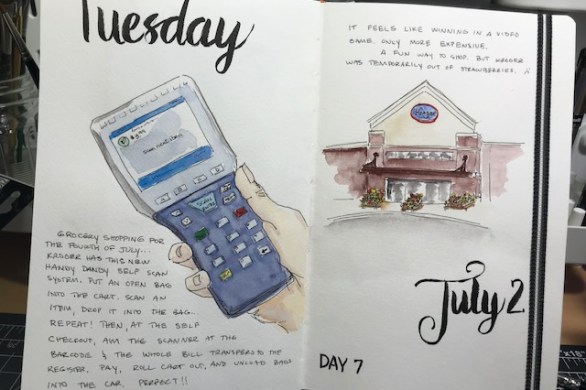 Tuesday
Scan next item
GROCERY SHOPPING FOR
THE FOURTH OF JULY...
KROGER HAS THIS NEW
HANDY DANDY SELF SCAN
SYSTEM. PUT AN OPEN BAG
INTO THE CART. SCAN AN
ITEM, DROP IT INTO THE BAG...
REPEAT! THEN, AT THE SELF
CHECKOUT, AIM THE SCANNER AT THE
BARCODE & THE WHOLE BILL TRANSFERS TO THE
REGISTER. PAY, ROLL CART OUT, AND UNLOAD BAGS
INTO THE CAR. PERFECT!!
IT FEELS LIKE WINNING IN A VIDEO
GAME. ONLY MORE EXPENSIVE.
A FUN WAY TO SHOP. BUT KROGER
WAS TEMPORARILY OUT OF STRAWBERRIES.
Kroger
July 2
DAY 7